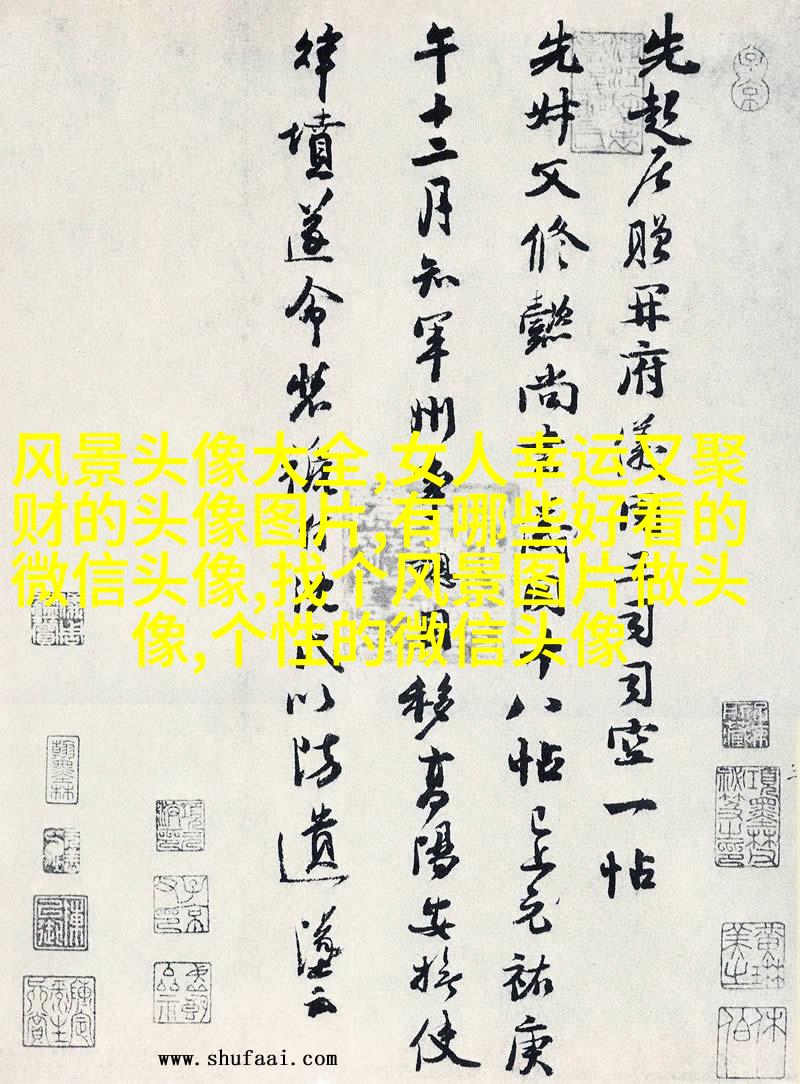 先起居贈開府儀同三司司空一帖
先姊父修懿尚書 國十八帖已上元祐庚
午十二月知軍州 移高陽安撫使
律墳遂命裝 以防遺墜云
风景头像大全,女人幸运又聚
财的头像图片,有哪些好看的
微信头像,找个风景图片做头
像,个性的微信头像
www.shufaai.com